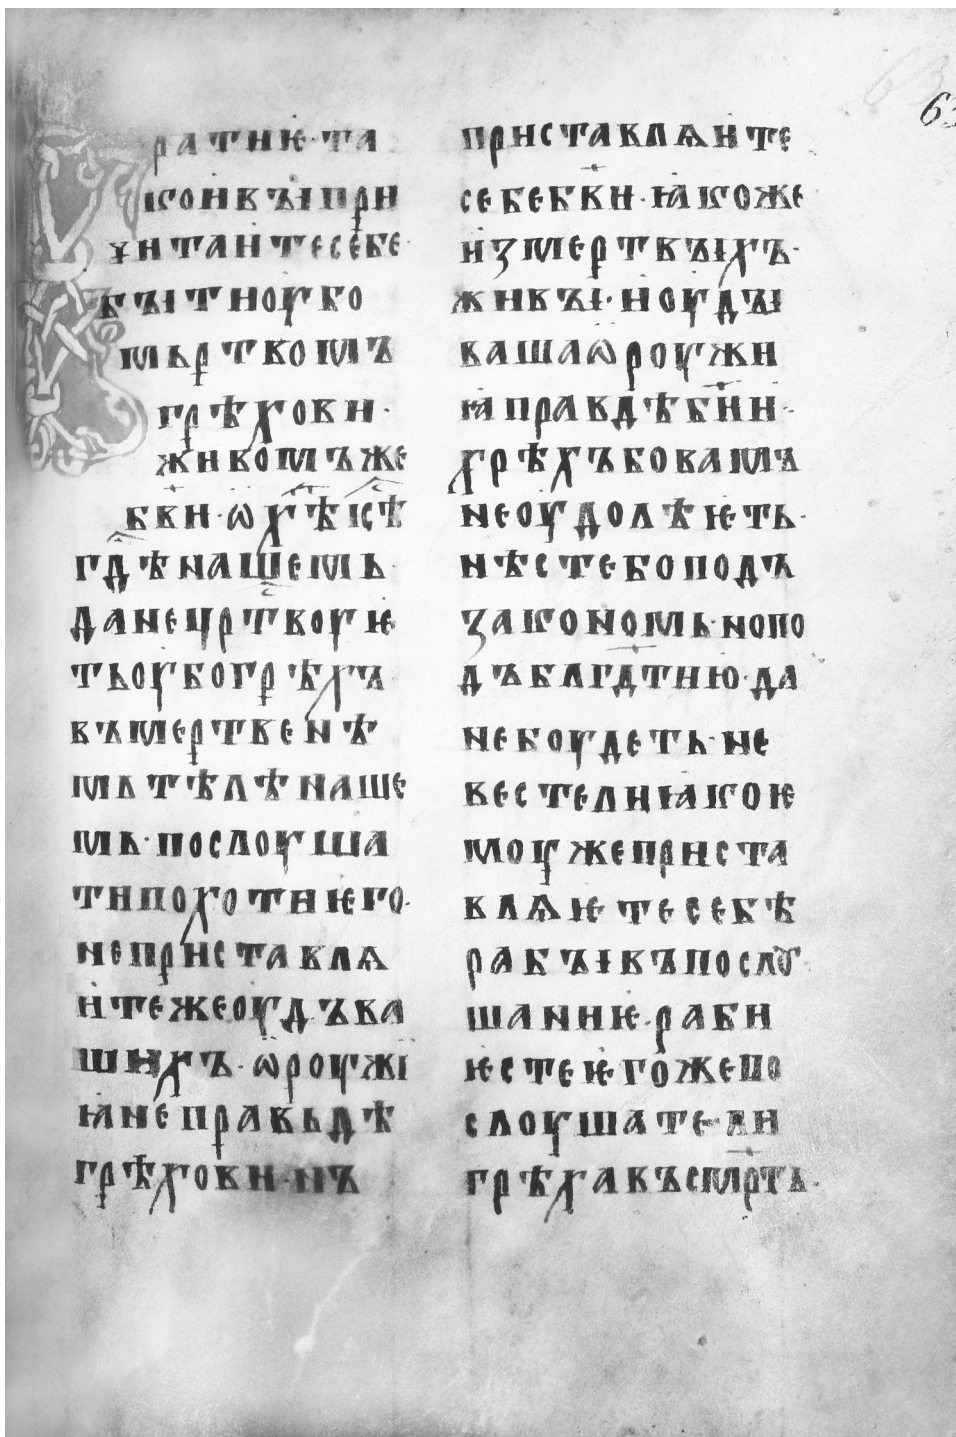 63
Братиѥ· та
кои въı при
читаите себе·
бъıти оубо
мьртвомъ
грѣховн·
живомъ же
бв҃и· ѡ х҃ѣ іс҃ѣ
гд҃ѣ нашемь·
да не цр҃твоуѥ
ть оубо грѣхъ
въ мертвенѣ
мь тѣлѣ наше
мь· послоуша
ти похоти ѥго·
не приставля
ите же оудъ ва
шихъ· ѡроужї
ꙗ неправьдѣ
грѣхови· нъ
приставлѧите
себе бв҃и· ꙗкоже
из мертвъıхъ·
живъı· и оудъı
ваша ѡроужи
ꙗ правдѣ бж҃ии·
грѣхъ бо вамъ
не оудолѣѥть·
нѣсте бо подъ
закономь· но по
дъ блг҃дтию· да
не боудеть· не
вестели ꙗко ѥ
моуже приста
влѧѥте себѣ
рабъı въ послѹ
шаниѥ· раби
ѥсте ѥгоже по
слоушате· ли
грѣха въ смр҃ть·